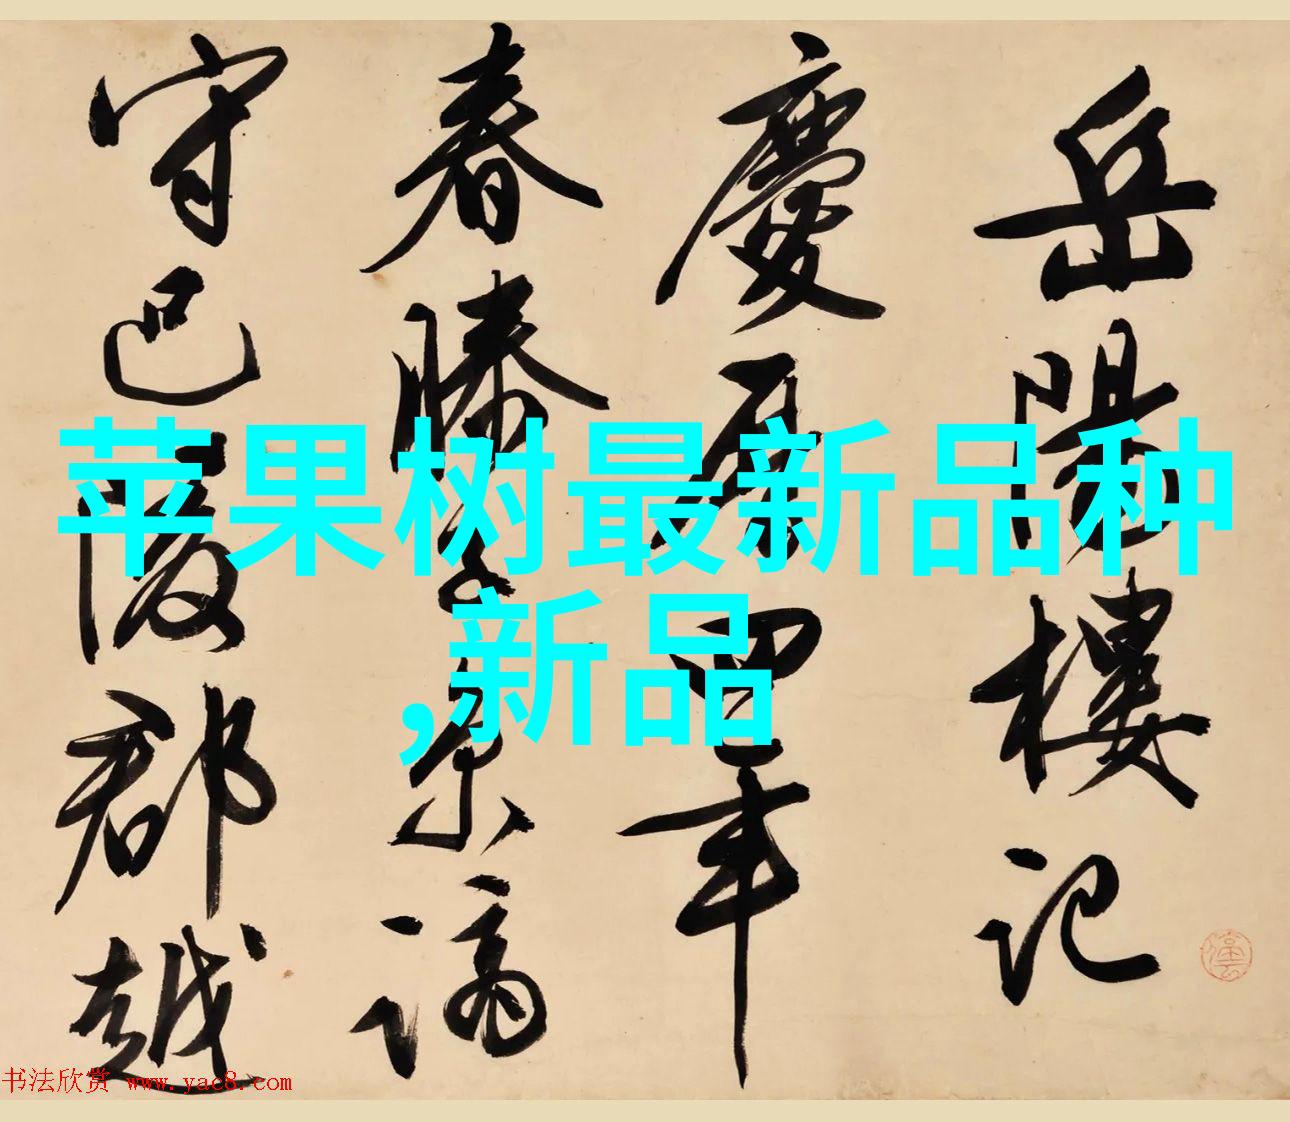 岳陽樓記
慶曆四年
春滕子京謫
守巴陵郡越
苹果树最新品种
,新品
书法欣赏 www.yac8.com